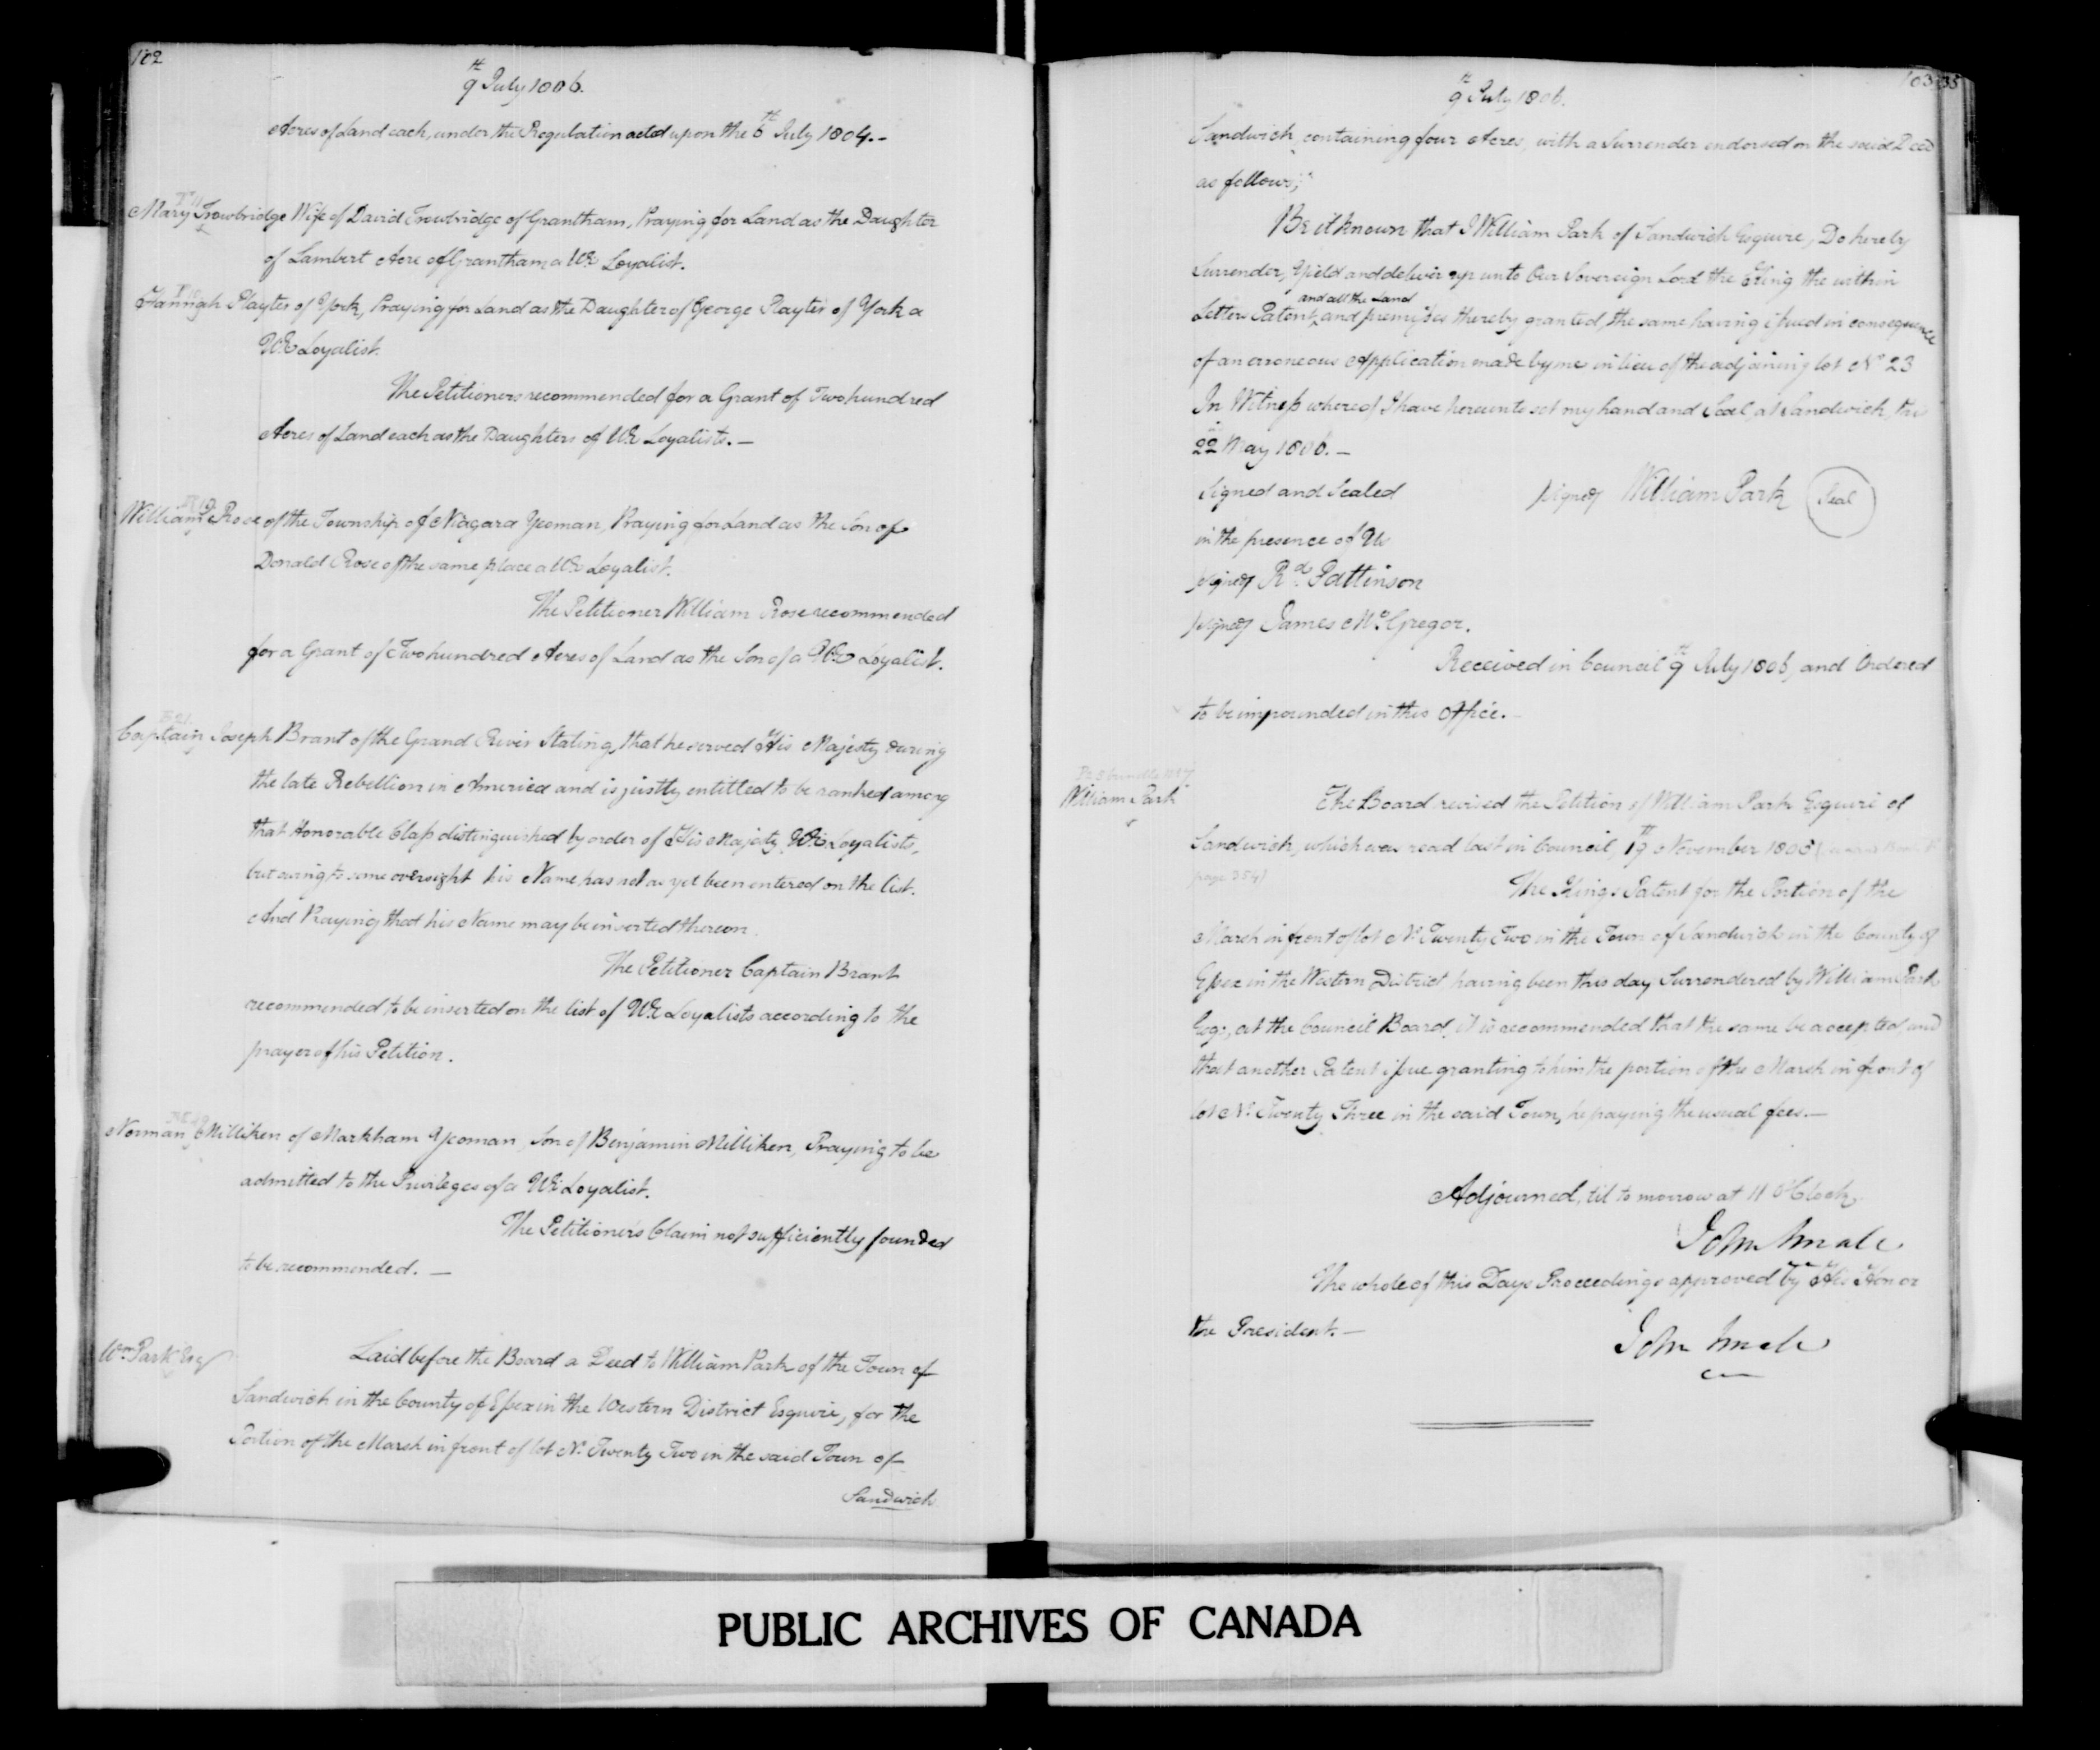 102
9th July 1806.
Acres of Land each, under the Regulation acted upon the 6th July 1804.-
Mary Trowbridge Wife of David Trowbridge of Grantham, Praying for Land as the Daughter
of Lambert Acre of Grantham a UE Loyalist.
Hannah Playter of York, Praying for Land as the Daughter of George Playter of York a
UE Loyalist.
The Petitioners recommended for a Grant of Two hundred
Acres of Land each as the Daughters of UE Loyalists.—
William Rose of the Township of Niagara Yeoman, Praying for Land as the Son of
Donald Rose of the same place a UE Loyalist.
The Petitioner William Rose recommended
for a Grant of Two hundred Acres of Land as the Son of a UE Loyalist.
Captain Joseph Brant of the Grand River Stating, that he served His Majesty during
the late Rebellion in America and is justly entitled to be ranked among
that Honorable Class distinguished by order of His Majesty, UE Loyalists,
but owing to some oversight his Name has not as yet been entered on the list.
And Praying that his Name may be inserted thereon.
The Petitioner Captain Brant
recommended to be inserted on the list of UE Loyalists according to the
prayer of his Petition.
Norman Milliken of Markham Yeoman, Son of Benjamin Milliken, Praying to be
admitted to the Privileges of a UE Loyalist.
The Petitioner's Claim not sufficiently founded
to be recommended.—
Wm Park Esqr
Laid before the Board a Deed to William Park of the Town of
Sandwich in the County of Essex in the Western District Esquire, for the
Portion of the Marsh in front of lot No. Twenty Two in the said Town of
Sandwich
103
35
9th July 1806.
Sandwich, containing four Acres, with a Surrender endorsed on the said Deed
as follows;"
Be it known that I William Park of Sandwich Esquire, Do hereby
Surrender, Yield and deliver up unto Our Sovereign Lord the King the within
and all the Land
Letters Patent, and premises thereby granted, the same having issued in consequence
of an erroneous Application made by me in lieu of the adjoining lot No 23
In Witness whereof I have hereunto set my hand and Seal, at Sandwich, this
22 May 1806.—
Signed and Sealed
signed William Park
Seal
in the presence of Us
signed Rd. Pattinson
signed James McGregor.
Received in Council 9th July 1806, and Ordered
to be impounded in this Office.-
William Park
The Board revised the Petition of William Park Esquire of
Sandwich, which was read last in Council, 19th November 1805
page 354)
The Kings Patent for the Portion of the
Marsh in front of lot No. Twenty Two in the Town of Sandwich in the County of
Essex in the Western District having been this day Surrendered by William Park
Esqr, at the Council Board, it is recommended that the same be accepted, and
that another Patent issue granting to him the portion of the Marsh in front of
lot No. Twenty Three in the said Town, he paying the usual fees.—
Adjourned, til to morrow at 11 O'Clock.
John Small
The whole of this Days Proceedings approved by His Honor
the President.—
John Small
PUBLIC ARCHIVES OF CANADA